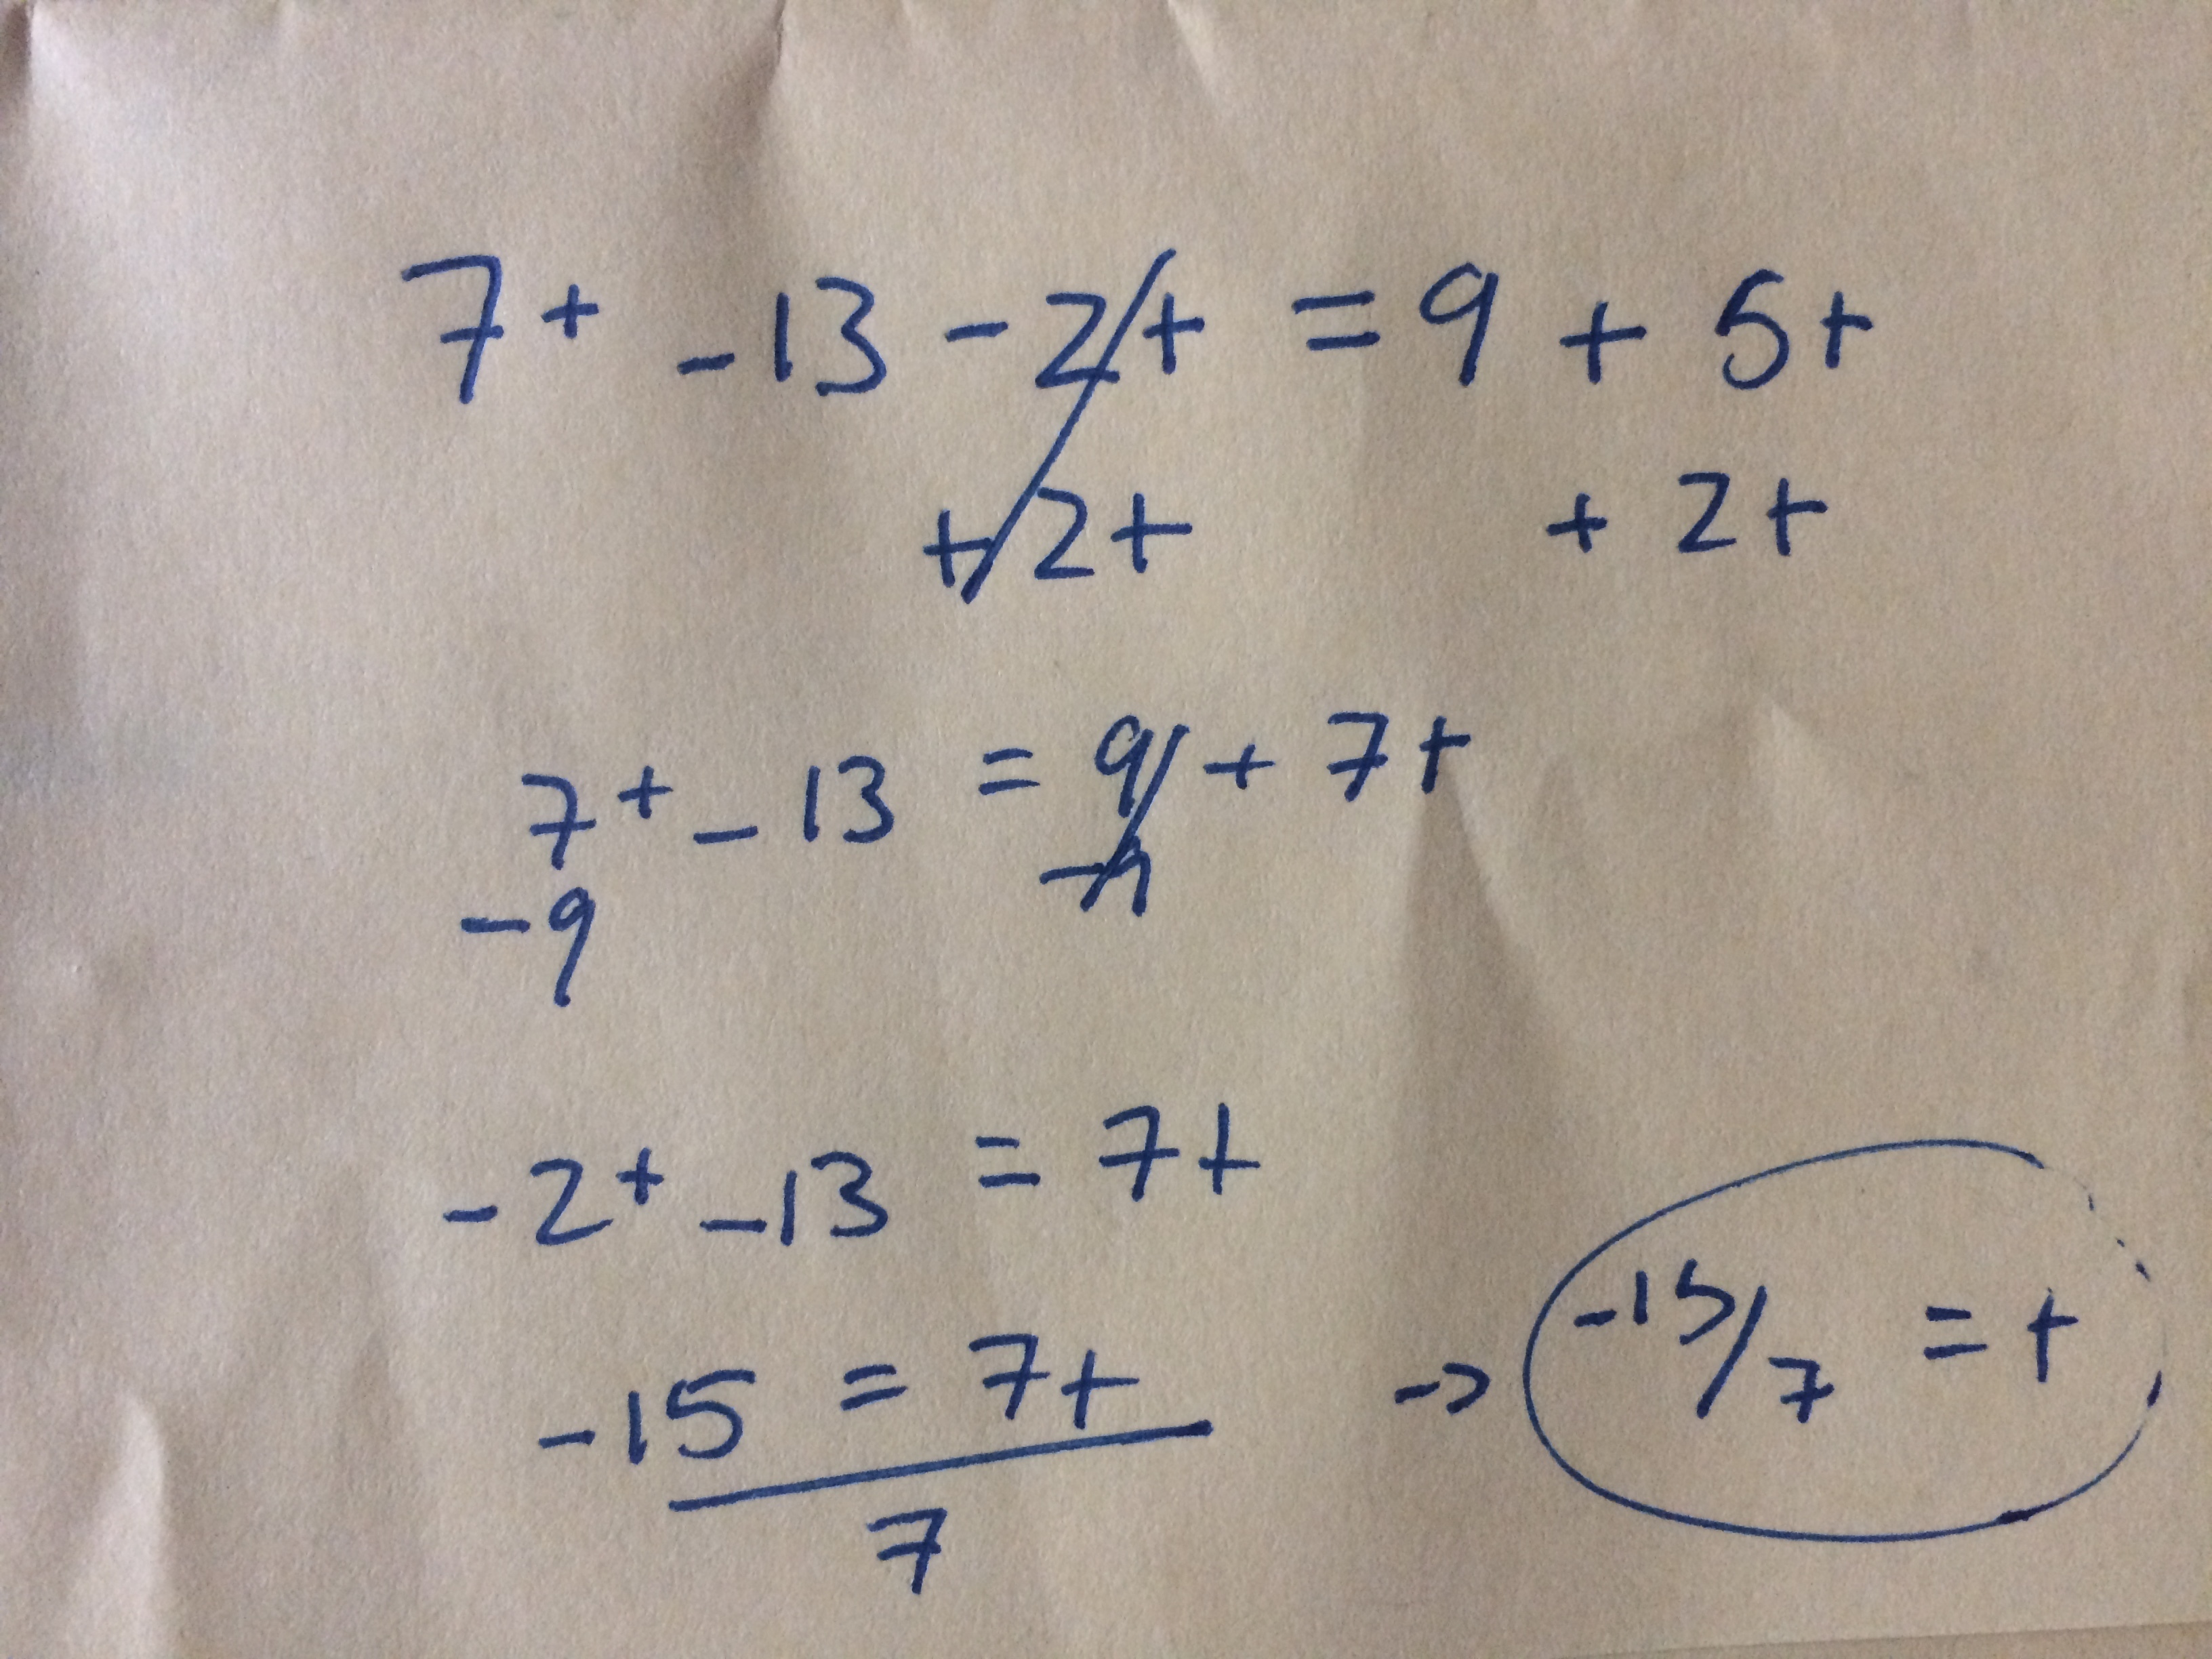 7t - 13 - 2t = 9 + 5t
+ 2t + 2t
7t - 13 = 9 + 7t
-9 -9
-2t - 13 = 7t
-15 = 7t → -15/7 = t
7